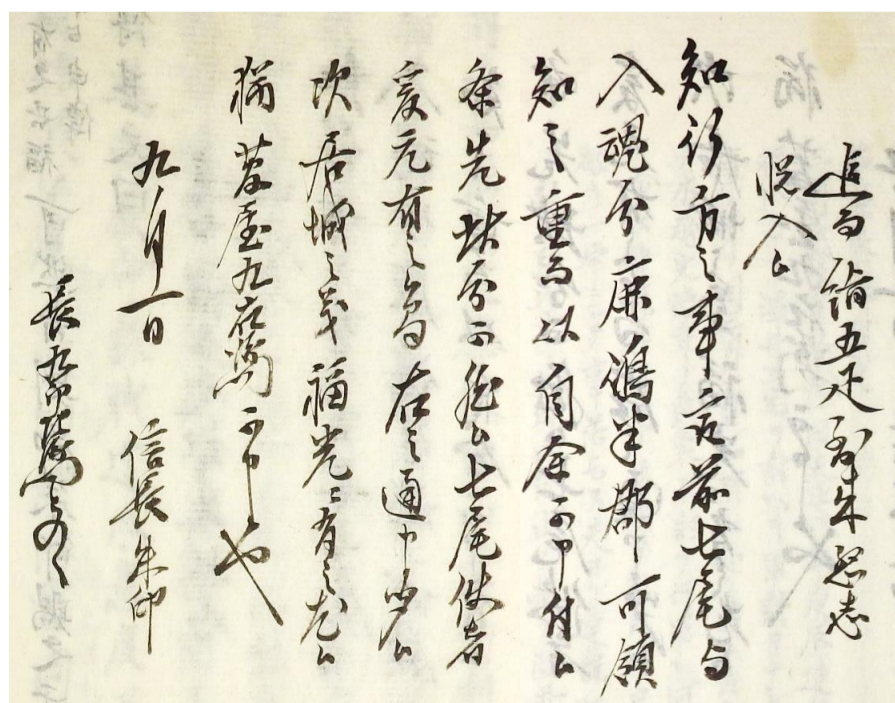 追而 五疋到来懇志
悦入候
知行方之事最前七尾与
入魂分鹿嶋半郡可領
知之重而以自余可申付候
条先此分可然候七尾使者
爰元有之間右之通申聞候
次居城之義福光ニ有之尤候
猶菅屋九右衛門可申也
九月一日 信長朱印
長九郎左衛門とのへ